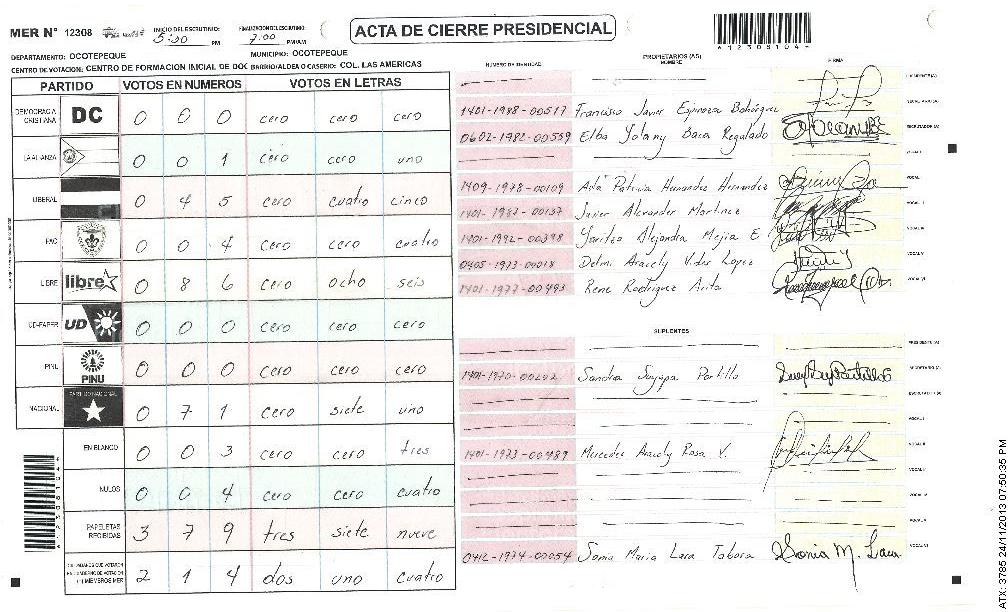 MER N° 12308 INICIO DE ESCRUTINIO: 5:00 PM FINALIZACION DE ESCRUTINIO: 7:00 PM/AM
ACTA DE CIERRE PRESIDENCIAL
DEPARTAMENTO: OCOTEPEQUE MUNICIPIO: OCOTEPEQUE
CENTRO DE VOTACION: CENTRO DE FORMACION INICIAL DE DOC BARRIO/ALDEA O CASERIO: COL. LAS AMERICAS
PARTIDO VOTOS EN NUMEROS VOTOS EN LETRAS
DEMOCRACIA CRISTIANA DC 0 0 0 cero cero cero
LA ALIANZA 0 0 1 cero cero uno
LIBERAL 0 4 5 cero cuatro cinco
PAC 0 0 4 cero cero cuatro
LIBRE libre 0 8 6 cero ocho seis
UD-FAPER UD 0 0 0 cero cero cero
PINU PINU 0 0 0 cero cero cero
NACIONAL PARTIDO NACIONAL 0 7 1 cero siete uno
EN BLANCO 0 0 3 cero cero tres
NULOS 0 0 4 cero cero cuatro
PAPELETAS RECIBIDAS 3 7 9 tres siete nueve
CIUDADANOS QUE VOTARON EN CUADERNO DE VOTACION (+) MIEMBROS MER 2 1 4 dos uno cuatro
NUMERO DE IDENTIDAD PROPIETARIOS (AS) NOMBRE FIRMA
PRESIDENTE (A)
1401-1988-00517 Francisco Javier Espinoza Bohorquez SECRETARIO (A)
0602-1982-00559 Elba Yolany Baca Regalado ESCRUTADOR (A)
VOCAL I
1409-1978-00109 Ada Patricia Hernandez Hernandez VOCAL
1401-1987-00137 Javier Alexander Martinez VOCAL
1401-1992-00398 Yaritza Alejandra Mejia E. VOCAL
0405-1973-00018 Delmi Aracely Vides Lopez VOCAL V
1401-1977-00493 Rene Rodriguez Arita VOCAL VI
SUPLENTES
PRESIDENTE (A)
1401-1970-00202 Sandra Suyapa Portillo SECRETARIO (A)
ESCRUTADOR (A)
VOCAL I
1401-1973-00489 Mercedes Aracely Rosa V. VOCAL II
VOCAL
VOCAL IV
VOCAL V
0412-1974-00054 Sonia Maria Lara Tabora Sonia M. Lara VOCAL VI
ATX: 3785 24/11/2013 07:50:35 PM